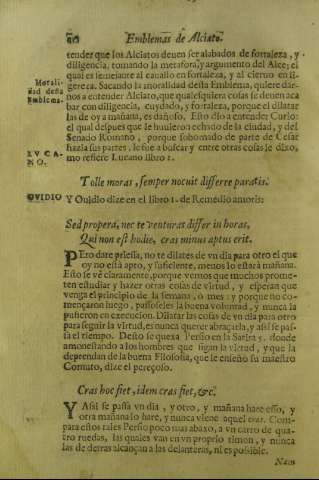 Emblemas de Alciato.
tender que los Alciatos deuen ser alabados de fortaleza, y
diligencia, tomando la metafora, y argumento del Alce; el
qual es semejante al cauallo en fortaleza, y al cieruo en li-
gereza. Sacando la moralidad desta Emblema, quiere dar-
nos a entender Alciato, que qualesquiera cosas se deuen aca
bar con diligencia, cuydado, y fortaleza, porque el dilatar
las de oy a mañana, es dañoso. Esto dio a entender Curio:
el qual despues que le huuieron echado de la ciudad, y del
Senado Romano, porque sobornado de parte de Cesar
hazia sus partes, le fue a buscar y entre otras cosas le dixo,
como refiere Lucano libro 1.
Morali-
dad desta
Emblema.
LVCA-
NO.
Tolle moras, semper nocuit differre paratis.
OVIDIO
Y Ouidio dize en el libro 1. de Remedio amoris:
Sed propera, nec te venturas differ in horas,
Qui non est hodie, cras minus aptus erit.
PEro dare priessa, no te dilates de vn dia para otro el que
oy no está apto, y suficiente, menos lo estará mañana.
Esto se vè claramente, porque vemos que muchos prome-
ten estudiar y hazer otras cosas de virtud, y esperan que
venga el principio de la semana, ò mes: y porque no co-
mençaron luego, passoseles la buena voluntad, y nunca la
pusieron en execucion. Dilatar las cosas de vn dia para otro
para seguir la virtud, es nunca querer abraçarla, y assi se pas-
sa el tiempo. Desto se quexa Persio en la Satira 5. donde
amonestando a los hombres que sigan la virtud, y que la
deprendan de la buena Filosofia, que le enseño su maestro
Cornuto, dize el pereçoso.
Cras hoc fiet, idem cras fiet, &c.
Y Assi se passa vn dia, y otro, y mañana hare esso, y
otra mañana lo hare, y nunca viene aquel cras. Com-
para estos tales Persio poco mas abaxo, a vn carro de qua-
tro ruedas, las quales van en vn proprio timon, y nunca
las de detras alcançan a las delanteras, ni es possible.
Nam